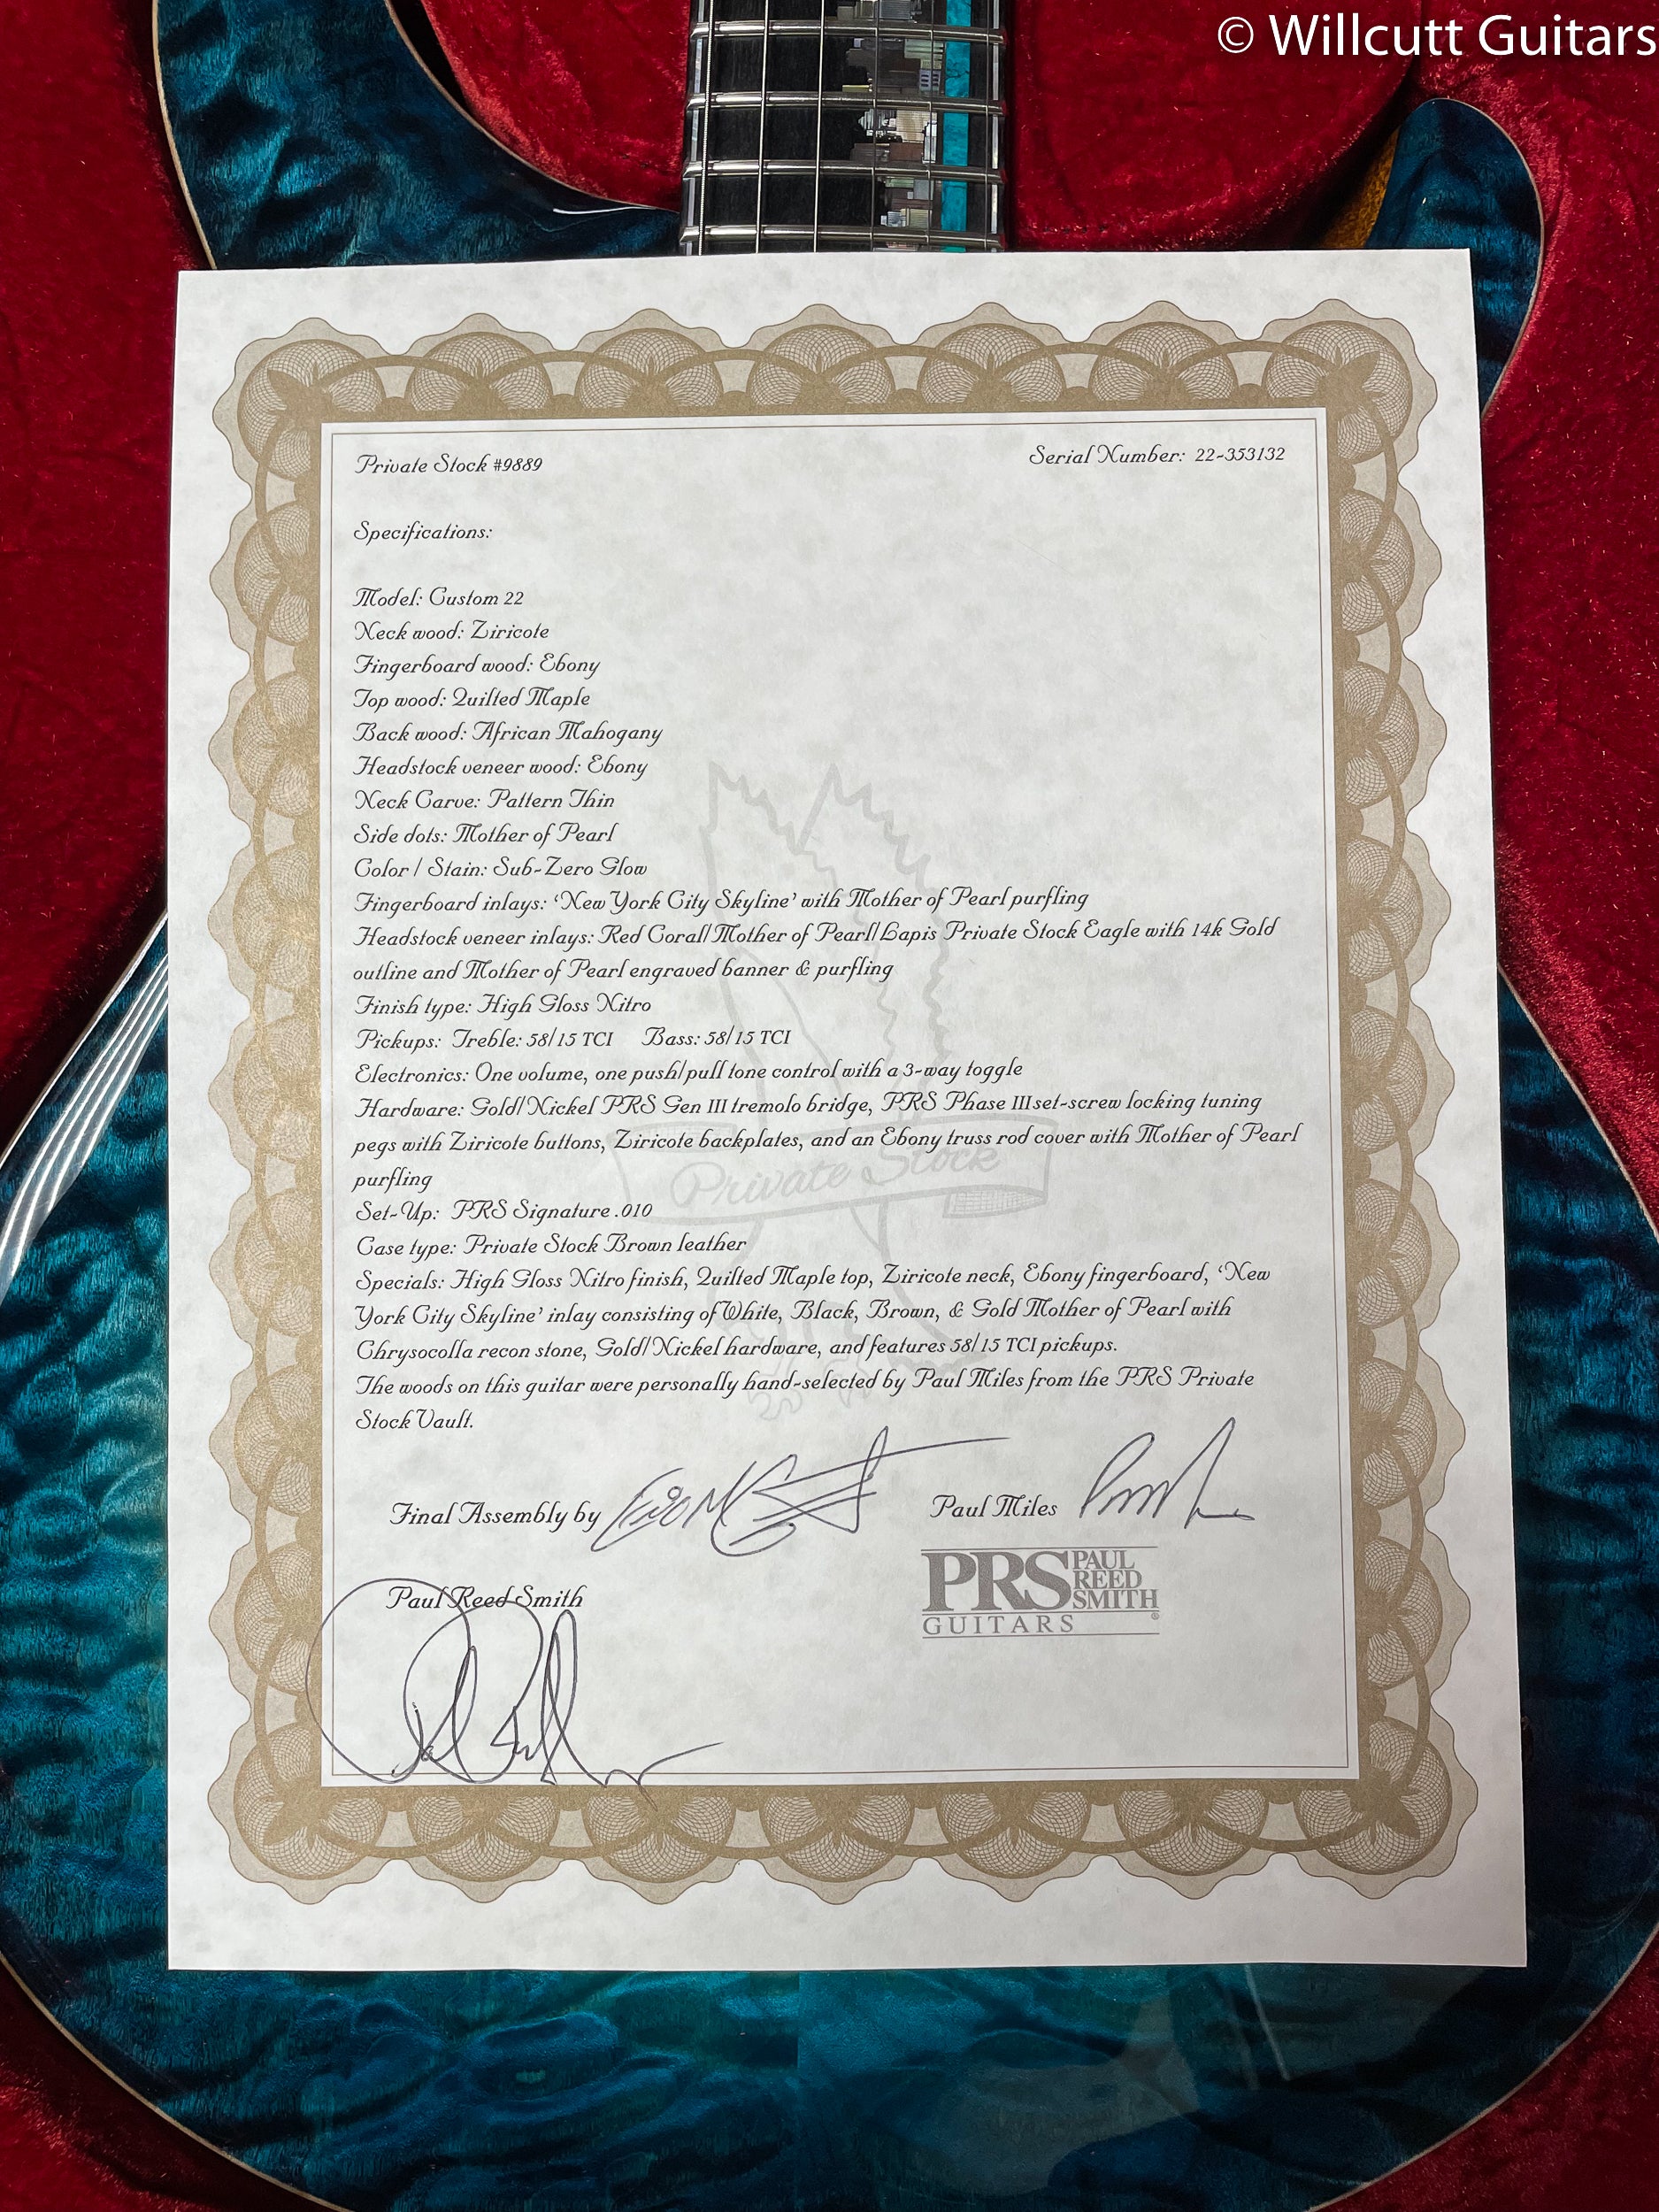 © Willcutt Guitars
Private Stock #9889
Serial Number: 22-353132
Specifications:
Model: Custom 22
Neck wood: Ziricote
Fingerboard wood: Ebony
Top wood: Quilted Maple
Back wood: African Mahogany
Headstock veneer wood: Ebony
Neck Carve: Pattern Thin
Side dots: Mother of Pearl
Color / Stain: Sub-Zero Glow
Fingerboard inlays: ‘New York City Skyline’ with Mother of Pearl purfling
Headstock veneer inlays: Red Coral/Mother of Pearl/Lapis Private Stock Eagle with 14k Gold
outline and Mother of Pearl engraved banner & purfling
Finish type: High Gloss Nitro
Pickups: Treble: 58/15 TCI Bass: 58/15 TCI
Electronics: One volume, one push/pull tone control with a 3-way toggle
Hardware: Gold/Nickel PRS Gen III tremolo bridge, PRS Phase III set-screw locking tuning
pegs with Ziricote buttons, Ziricote backplates, and an Ebony truss rod cover with Mother of Pearl
purfling
Private Stock
Set-Up: PRS Signature .010
Case type: Private Stock Brown leather
Specials: High Gloss Nitro finish, Quilted Maple top, Ziricote neck, Ebony fingerboard, ‘New
York City Skyline’ inlay consisting of White, Black, Brown, & Gold Mother of Pearl with
Chrysocolla recon stone, Gold/Nickel hardware, and features 58/15 TCI pickups.
The woods on this guitar were personally hand-selected by Paul Miles from the PRS Private
Stock Vault.
Final Assembly by
Paul Miles
Paul Reed Smith
PRS PAUL
REED
SMITH
GUITARS ®